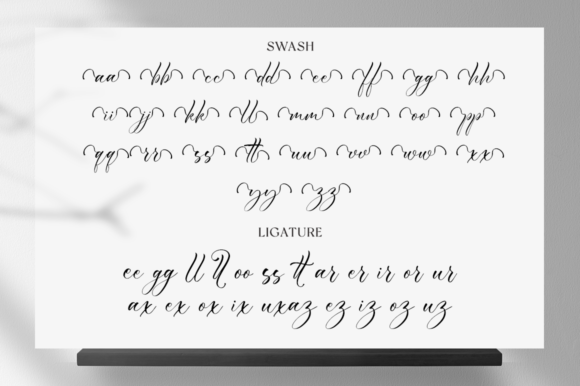 SWASH
aa bb cc dd ee ff gg hh
ii jj kk ll mm nn oo pp
qq rr ss tt uu vv ww xx
yy zz
LIGATURE
ee gg ll oo ss tt ar er ir or ur
ax ex ox ix uxaz ez iz oz uz